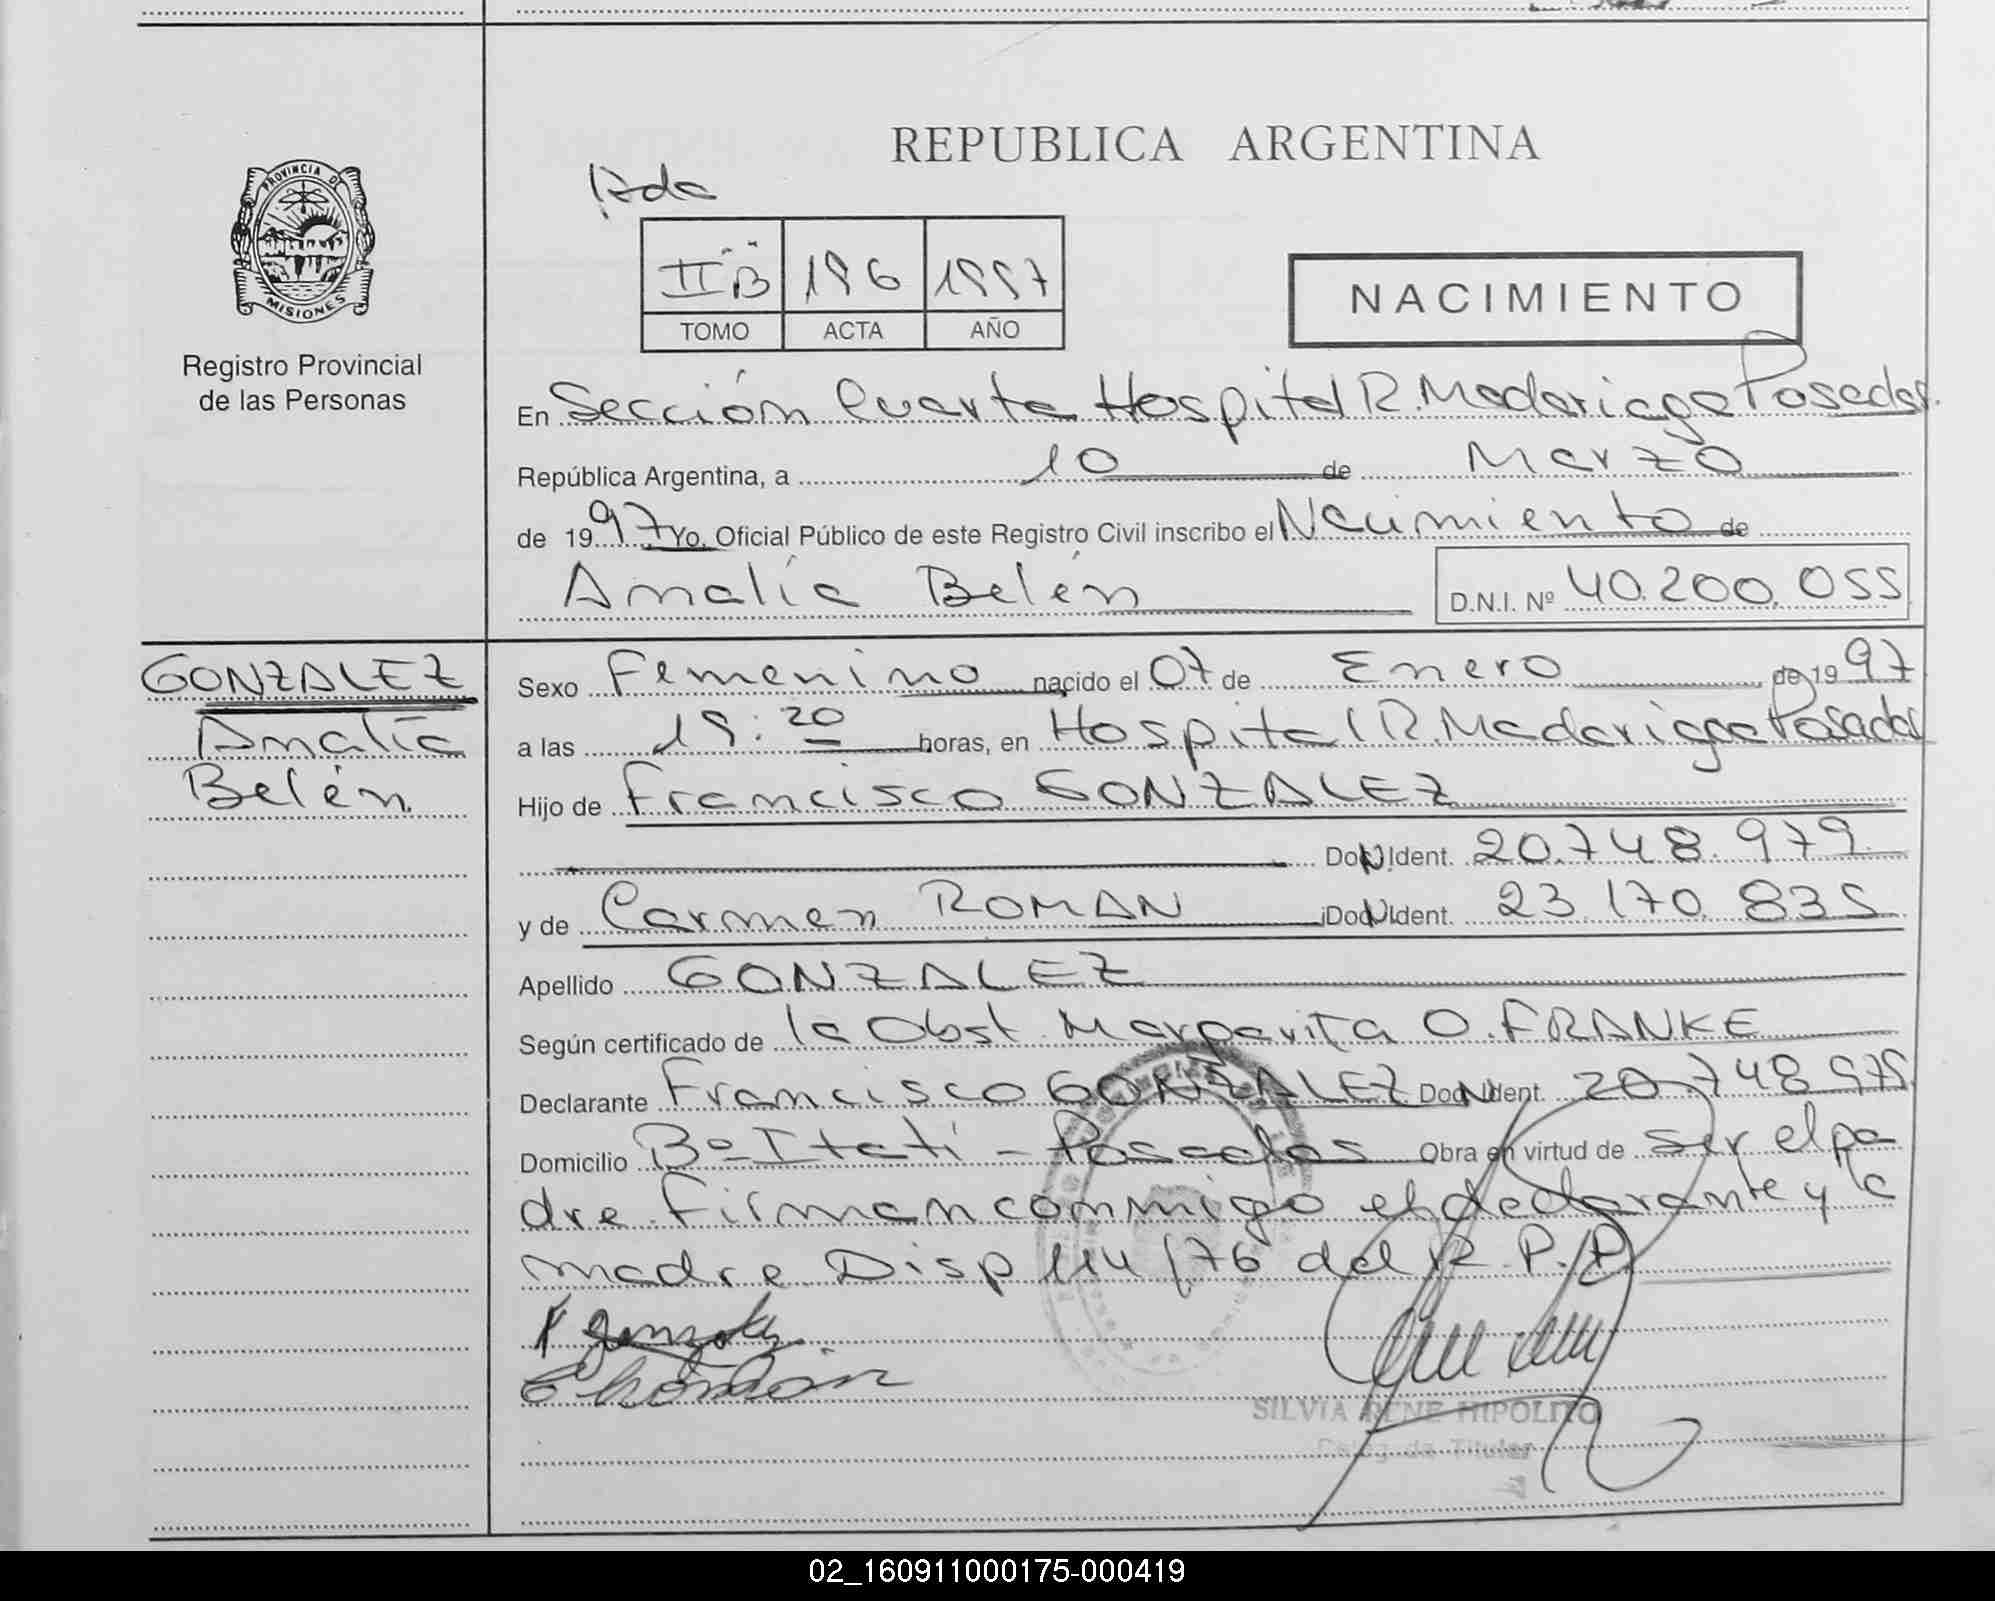 REPUBLICA ARGENTINA
PROVINCIA DE
MISIONES
Registro Provincial
de las Personas
II B 196 1997
TOMO ACTA AÑO
NACIMIENTO
En Sección Cuarta Hospital R. Madariaga Posadas.
República Argentina, a 10 de Marzo
de 1997 Yo, Oficial Público de este Registro Civil inscribo el Nacimiento de
Amalía Belén D.N.I. Nº 40.200.055
GONZALEZ
Amalía
Belén
Sexo Femenino nacido el 07 de Enero de 1997
a las 19:20 horas, en Hospital R. Madariaga Posadas
Hijo de Francisco GONZALEZ
Doc. Ident. 20.748.979
y de Carmen ROMAN Doc. Ident. 23.170.835
Apellido GONZALEZ
Según certificado de la Obst. Margarita O. FRANKE
Declarante Francisco GONZALEZ Doc. Ident. 20.748.979
Domicilio Bº Itatí - Posadas Obra en virtud de ser el pa
dre. Firman conmigo el declarante y la
madre. Disp 114/76 del R.P.P.
F Gonzalez
C Roman
SILVIA RENE HIPOLITO
Titular
02_160911000175-000419